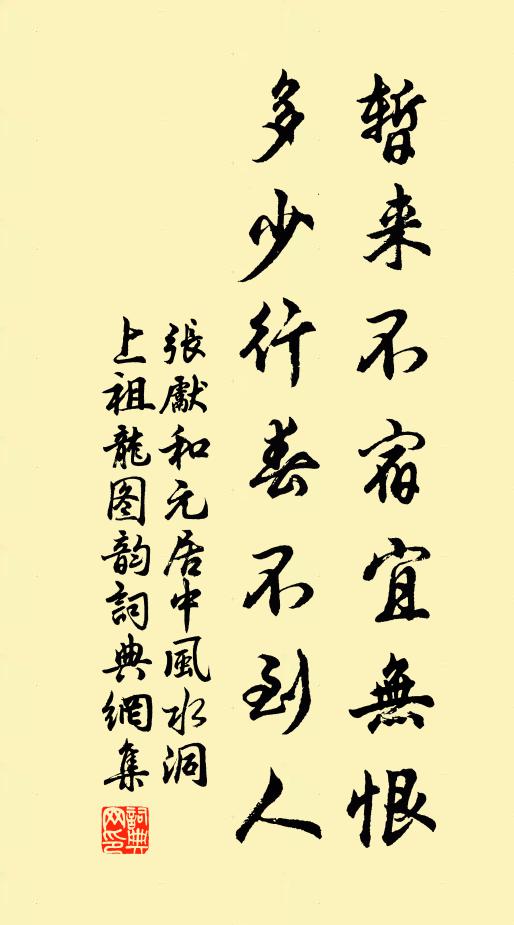 暫来不宿宜無恨
多少行春不到人
張獻和元居中風水洞
上祖龍图韵詞典網集
詞典网印